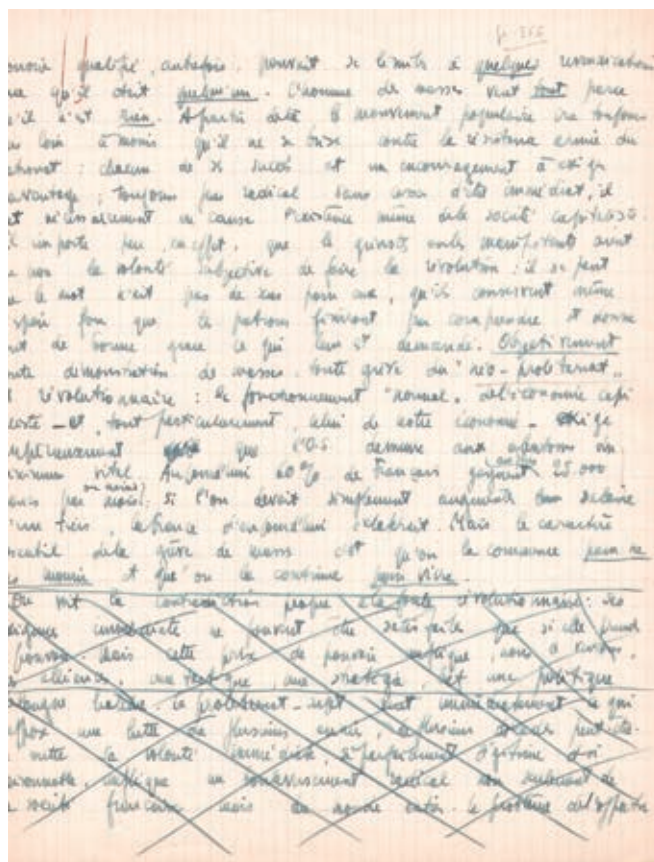 p. 356
qualifié, autrefois, pouvait se limiter à quelques revendications
qu'il était quelqu'un. L'homme de masse veut tout parce
qu'il n'est rien. A partir de là, le mouvement populaire ira toujours
loin à moins qu'il ne se brise contre la résistance armée du
: chacun de ses succès est un encouragement à exiger
davantage ; toujours plus radical sans cesser d'être immédiat, il
met nécessairement en cause l'existence même de la société capitaliste.
Il importe peu, en effet, que les grévistes ou les manifestants aient
ou non la volonté subjective de faire la révolution : il se peut
que le mot n'ait pas de sens pour eux, qu'ils conservent même
l'espoir fou que les patrons finiront par comprendre et donner
de bonne grâce ce qui leur est demandé. Objectivement
toute démonstration de masse, toute grève du "néo-prolétariat"
est révolutionnaire : le fonctionnement "normal" de l'économie capi
taliste - et, tout particulièrement, celui de notre économie - exige
que l'O.S. demeure aux environs du
minimum vital. Aujourd'hui 60% de Français gagnent 25.000
francs par mois ou moins : si l'on devait simplement augmenter leur salaire
d'un tiers, la France d'aujourd'hui éclaterait. Mais le caractère
de la grève de masse c'est qu'on la commence pour ne
pas mourir et que l'on la continue pour vivre.
On voit la contradiction propre à la foule révolutionnaire : ses
exigences immédiates ne peuvent être satisfaites que si elle prend
le pouvoir. Mais cette prise de pouvoir implique,
une tactique, une stratégie, et une politique
longue haleine. Le prolétariat-sujet veut immédiatement ce qui
suppose une lutte de plusieurs années, de plusieurs
la volonté immédiate,
implique un radical non seulement de
la société française mais du monde entier. Le problème